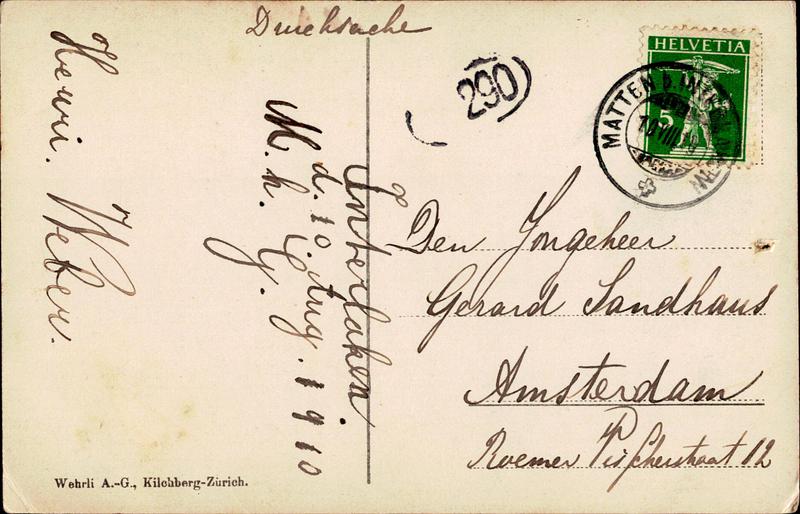 Drucksache
290
HELVETIA
5
MATTEN b. INTERLAKEN
Interlaken
d. 10 Aug. 1910
M. h. G.
Henri. Weber.
Den Jongeheer
Gerard Sandhaus
Amsterdam
Roemer Visscherstraat 12
Wehrli A.-G., Kilchberg-Zürich.